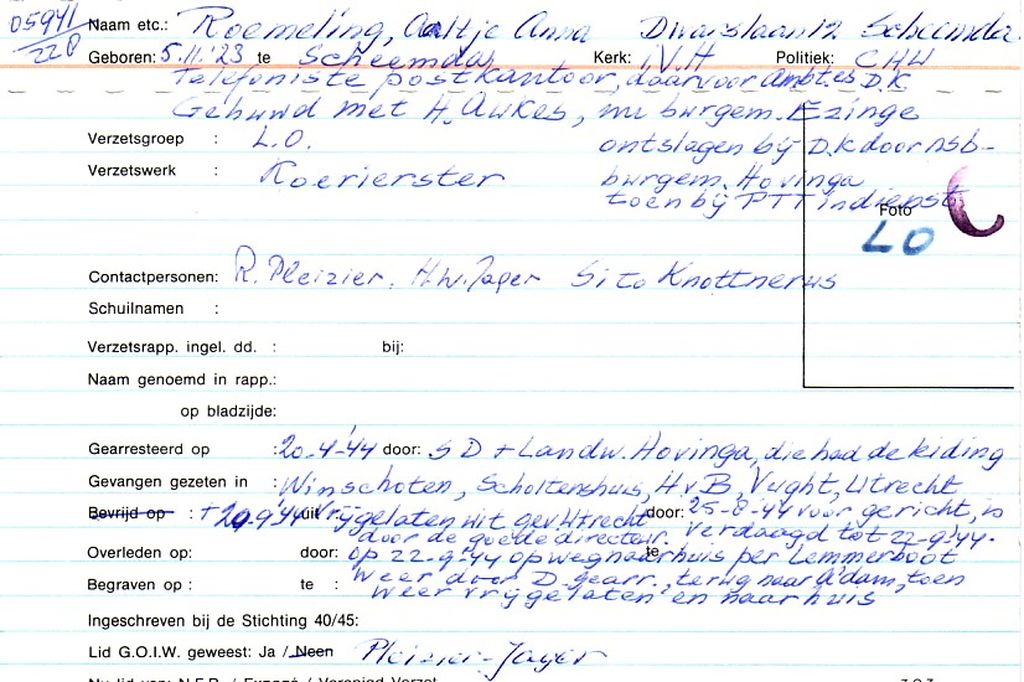 05941/220
Naam etc.: Roemeling, Aaltje Anna Dwarslaan 12 Scheemda
Geboren: 5.11.'23 te Scheemda Kerk: N.H Politiek: CHU
Telefoniste postkantoor, daarvoor ambt.es D.K
Gehuwd met H. Aukes, nu burgem. Ezinge
Verzetsgroep : L.O. ontslagen bij D.K door nsb-
Verzetswerk : Koerierster burgem. Hovinga
toen bij PTT in dienst
Foto
LO
Contactpersonen: R. Pleizier, H.W. Jager Sito Knottnerus
Schuilnamen :
Verzetsrapp. ingel. dd. : bij:
Naam genoemd in rapp.:
op bladzijde:
Gearresteerd op : 20-4-'44 door: SD + Landw. Hovinga, die had de leiding
Gevangen gezeten in : Winschoten, Scholtenshuis, H v B, Vught, Utrecht
Bevrijd op : uit vrijgelaten uit gev. Utrecht door: 25-8-44 voor gericht, is
door de goede directeur. verdaagd tot 22-9-'44.
Overleden op: door: op 22-9-'44 op weg naar huis per Lemmerboot te
Begraven op : te : weer door D. gearr., terug naar A'dam, toen
weer vrijgelaten en naar huis
Ingeschreven bij de Stichting 40/45:
Lid G.O.I.W. geweest: Ja / Neen Pleizier-Jager